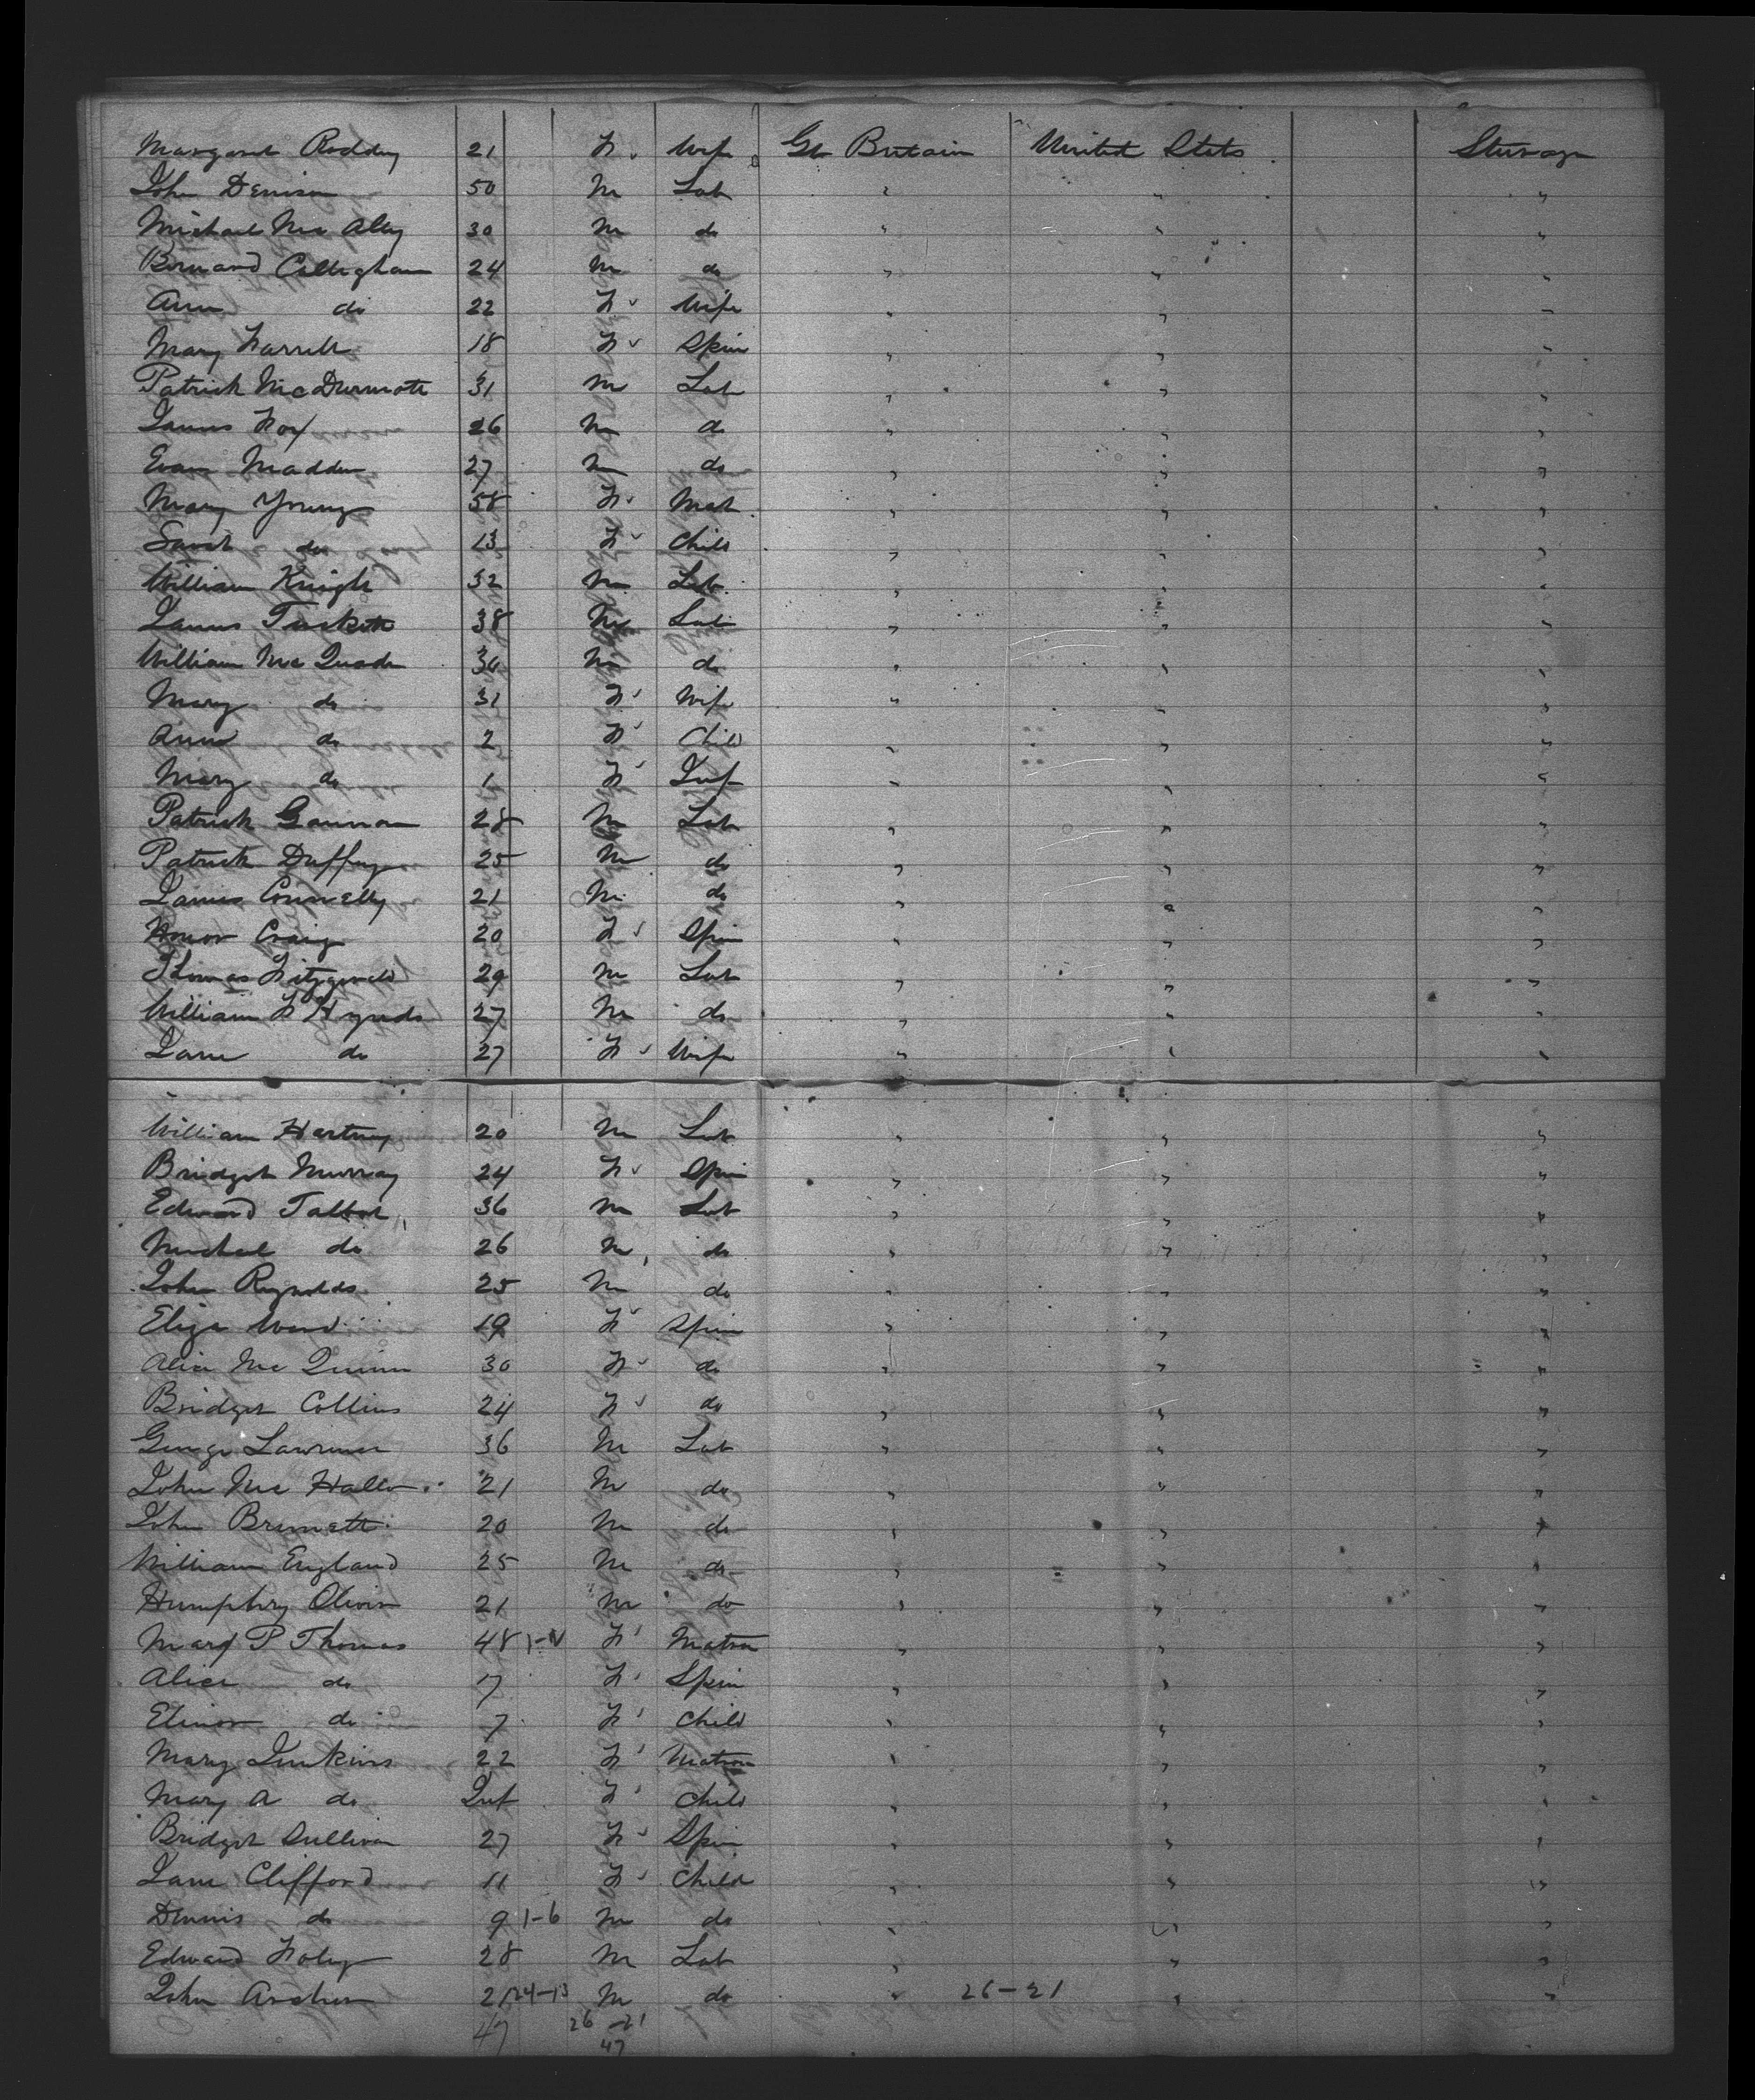 Margaret Roddy 21 F. Wife Gt Britain United States Steerage
John Denison 50 M Lab " " "
Michael Mc Alley 30 M do " " "
Bernard Callighan 24 M do " " "
Ann do 22 F Wife " " "
Mary Farrell 18 F Spin " " "
Patrick McDermott 31 M Lab " " "
James Foy 26 M do " " "
Evan Madden 27 M do " " "
Mary Young 58 F Mat " " "
Sarah do 13 F Child " " "
William Knight 32 M Lab " " "
James Tuskett 38 M Lab " " "
William Mc Quade 34 M do " " "
Mary do 31 F Wife " " "
Ann do 2 F Child " " "
Mary do 1 F Inf " " "
Patrick Gannon 28 M Lab " " "
Patrick Duffy 25 M do " " "
James Connelly 21 M do " " "
Honor Craig 20 F Spin " " "
Thomas Fitzgerald 29 M Lab " " "
William F Hynds 27 M do " " "
Jane do 27 F Wife " " "
William Hartney 20 M Lab " " "
Bridget Murray 24 F Spin " " "
Edward Talbot 36 M Lab " " "
Michael do 26 M do " " "
John Reynolds 25 M do " " "
Eliza Ward 19 F Spin " " "
Alice Mc Quinn 30 F do " " "
Bridget Collins 24 F do " " "
George Lawrence 36 M Lab " " "
John Mc Hallo 21 M do " " "
John Brunett 20 M do " " "
William England 25 M do " " "
Humphry Oliver 21 M do " " "
Mary P Thomas 48 F Matron " " "
Alice do 17 F Spin " " "
Elinor do 7 F Child " " "
Mary Jenkins 22 F Matron " " "
Mary A do Inf F Child " " "
Bridget Sullivan 27 F Spin " " "
Jane Clifford 11 F Child " " "
Dennis do 9 1-6 M do " " "
Edward Foley 28 M Lab " " "
John Archer 21 24-13 M do " 26-21 " "
47 26-21
47